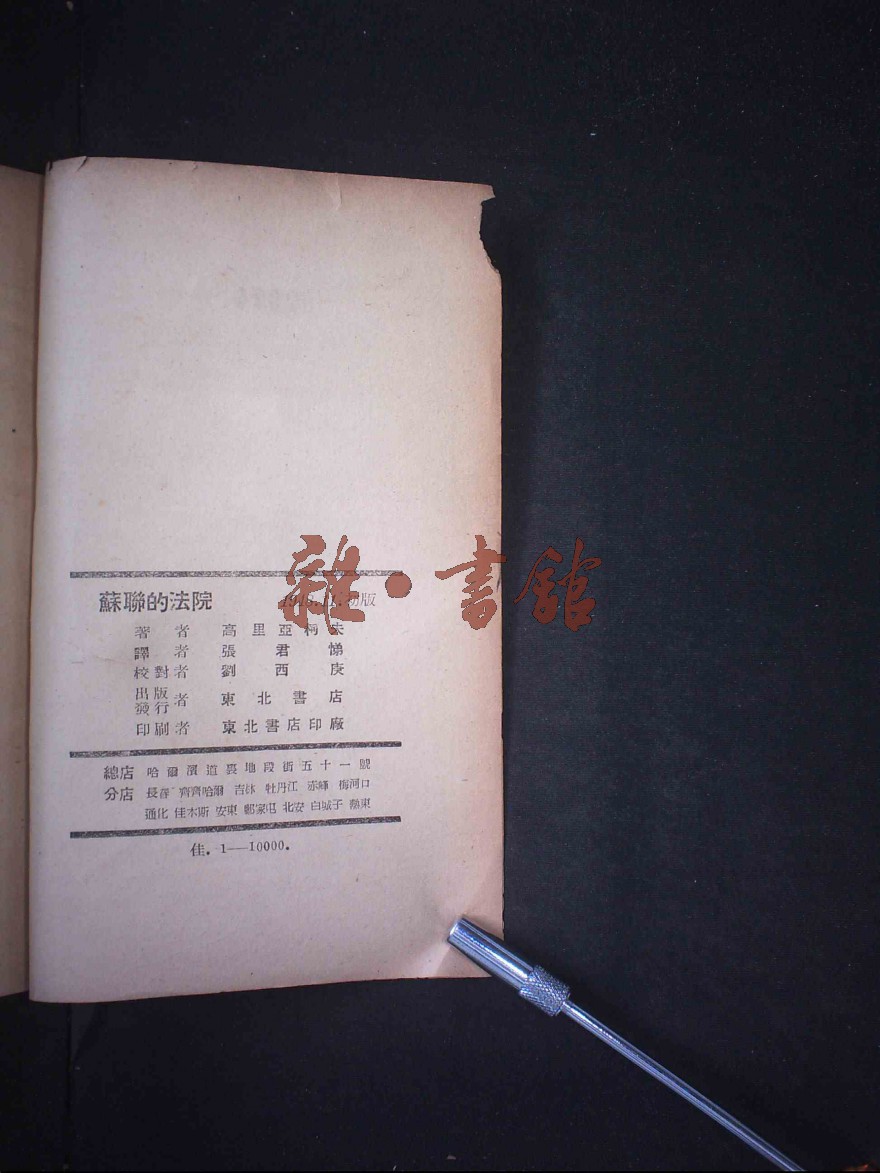 蘇聯的法院 1948.11.初版
著者 高里亞柯夫
譯者 張君悌
校對者 劉西庚
出版
發行 者 東北書店
印刷者 東北書店印廠
總店 哈爾濱道裏地段街五十一號
分店 長春 齊齊哈爾 吉林 牡丹江 赤峰 梅河口
通化 佳木斯 安東 鄭家屯 北安 白城子 熱東
佳. 1——10000.
雜·書館